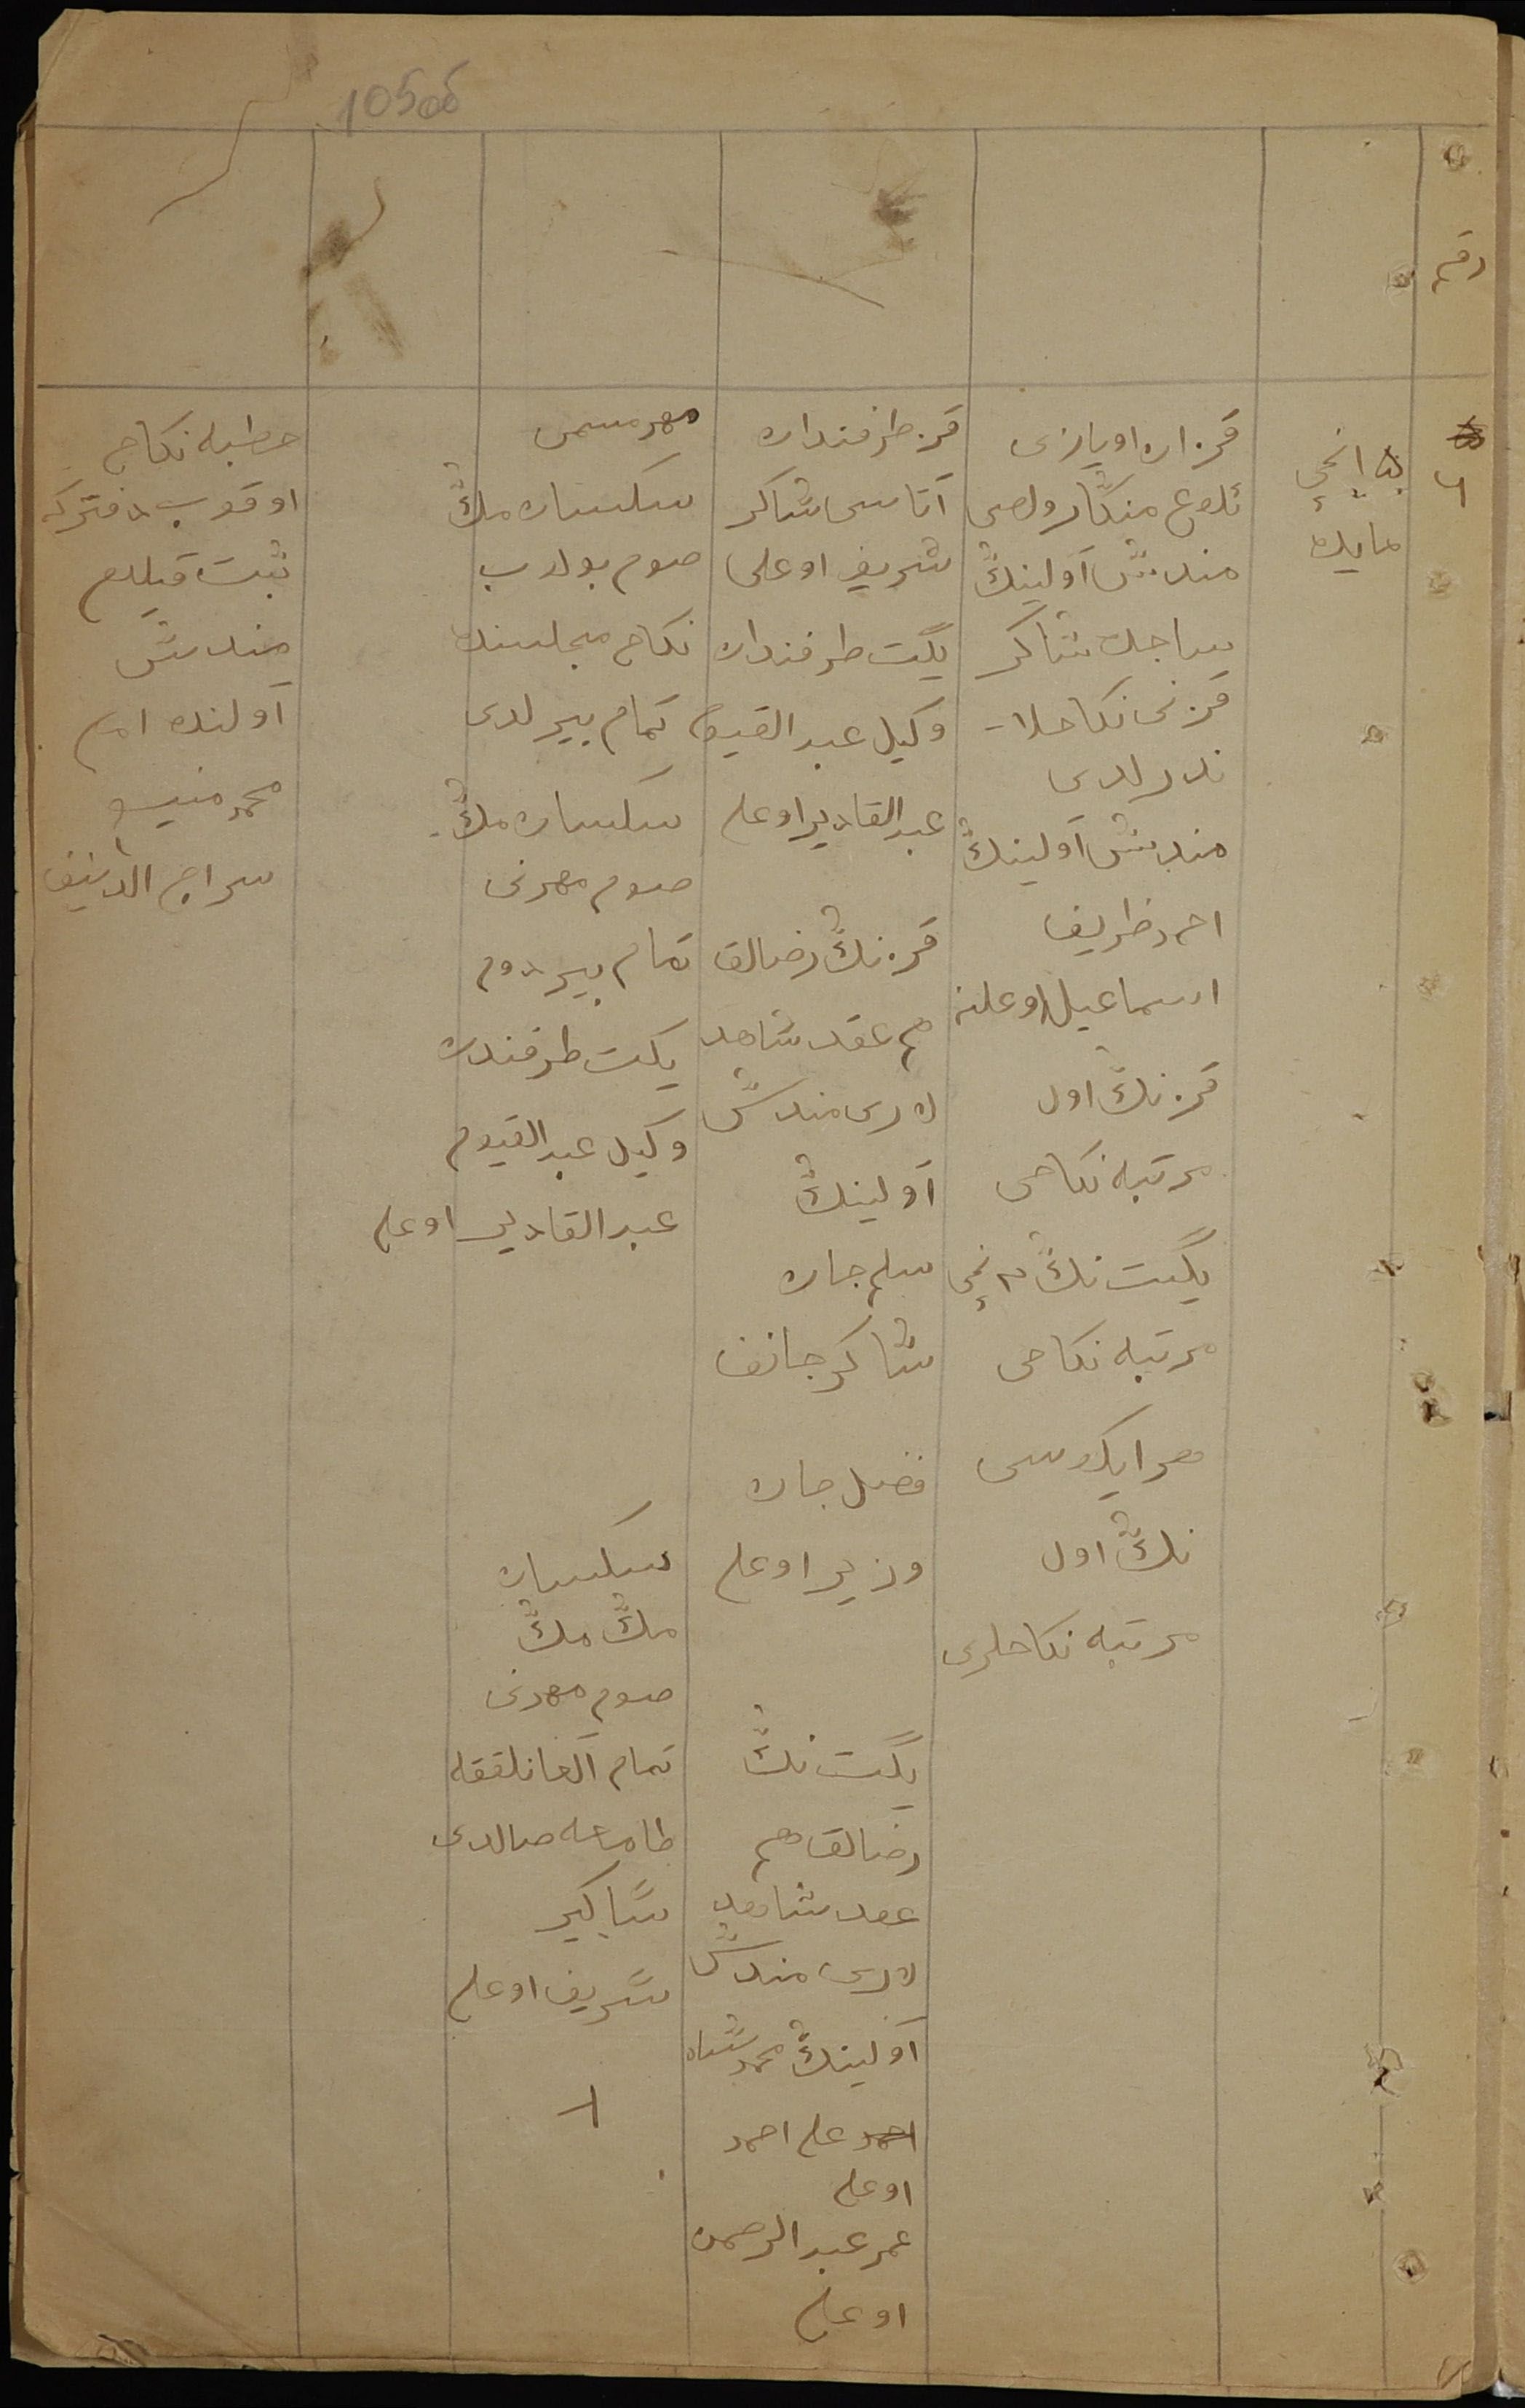 105об
رقم
٦
١٥ انچی
مایده
قزان اویازی
ئلوغ منگار ولصی
مندش آولینڭ
ساجده شاکر
قزنی نکاحلا-
ندرلدی
مندش آولینڭ
احمد ظریف
اسماعیل اوغلنه
قزنڭ اول
مرتبه نکاحی
یگت نڭ ٣نچی
مرتبه نکاحی
هر ایکوسی
نڭ اول
مرتبه نکاحلری
قز طرفندان
آتاسی شاکر
شریف اوغلی
یگت طرفندان
وکیل عبد القیوم
عبد القادیر اوغلی
قزنڭ رضالق
هم عقد شاهد
لاری مندش
آولینڭ
سلم جان
شاکرجانف
فضل جان
وزیر اوغلی
یگت نڭ
رضالق هم
عقد شاهد
لاری مندش
آولینڭ محمدشاه
احمد علی احمد
اوغلی
عمر عبد الرحمن
اوغلی
مهر مسمی
سکسان مڭ
صوم بولوب
نکاح مجلسنده
تمام بیرلدی
سکسان مڭ
صوم مهرنی
تمام بیردوم
یگت طرفندان
وکیل عبد القیوم
عبد القادیر اوغلی
سکسان
مڭ مڭ
صوم مهرنی
تمام آلغانلققه
طامغه صالدی
شاکیر
شریف اوغلی
خطبه نکاح
اوقوب دفترگه
ثبت قیلدم
مندش
آولنده امام
محمد منیب
سراج الدینف